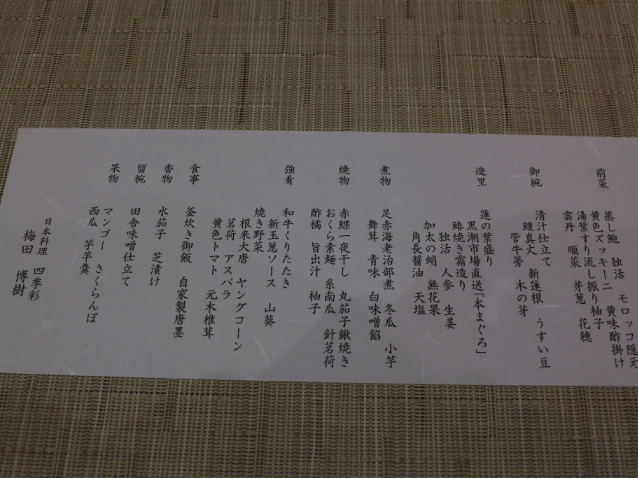 前菜
蒸し鮑 独活 モロッコ隠元
黄色ズッキーニ 黄味酢掛け
湯葉すり流し振り柚子
雲丹 順菜 芽葱 花穂
御椀
清汁仕立て
鱧真丈 新蓮根 うすい豆
管牛蒡 木の芽
造里
蓮の葉盛り
黒潮市場直送「本まぐろ」
鱚焼き霜造り
独活 人参 生姜
加太の蛸 無花果
角長醤油 天塩
煮物
足赤海老治部煮 冬瓜 小芋
舞茸 青味 白味噌餡
焼物
赤鰈一夜干し 丸茄子鍬焼き
おくら素麺 糸南瓜 針茗荷
酢橘 旨出汁 柚子
強肴
和牛くりたたき
新玉葱ソース 山葵
焼き野菜
根来大唐 ヤングコーン
茗荷 アスパラ
黄色トマト 元木椎茸
食事
釜炊き御飯 自家製唐墨
香物
水茄子 芝漬け
留椀
田舎味噌仕立て
果物
マンゴー さくらんぼ
西瓜 芋羊羹
日本料理 四季彩
梅田 博樹